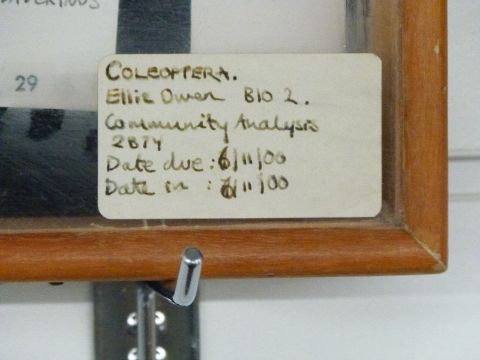 29
COLEOPTERA.
Ellie Owen BIO 2.
Community Analysis
2BTY
Date due: 6/11/00
Date in : 6/11/00